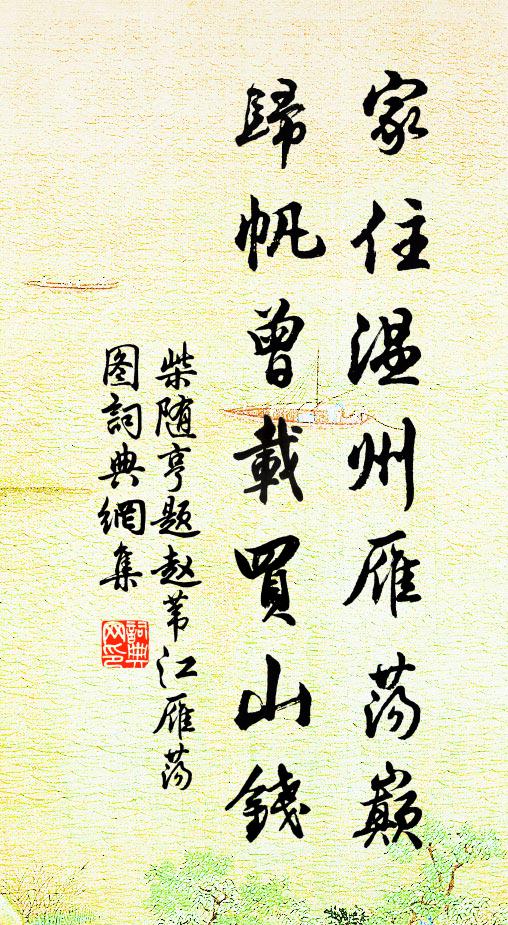 家住温州雁荡巅
歸帆曾載買山錢
柴随亨题赵苇江雁荡
图詞典網集
詞典网印